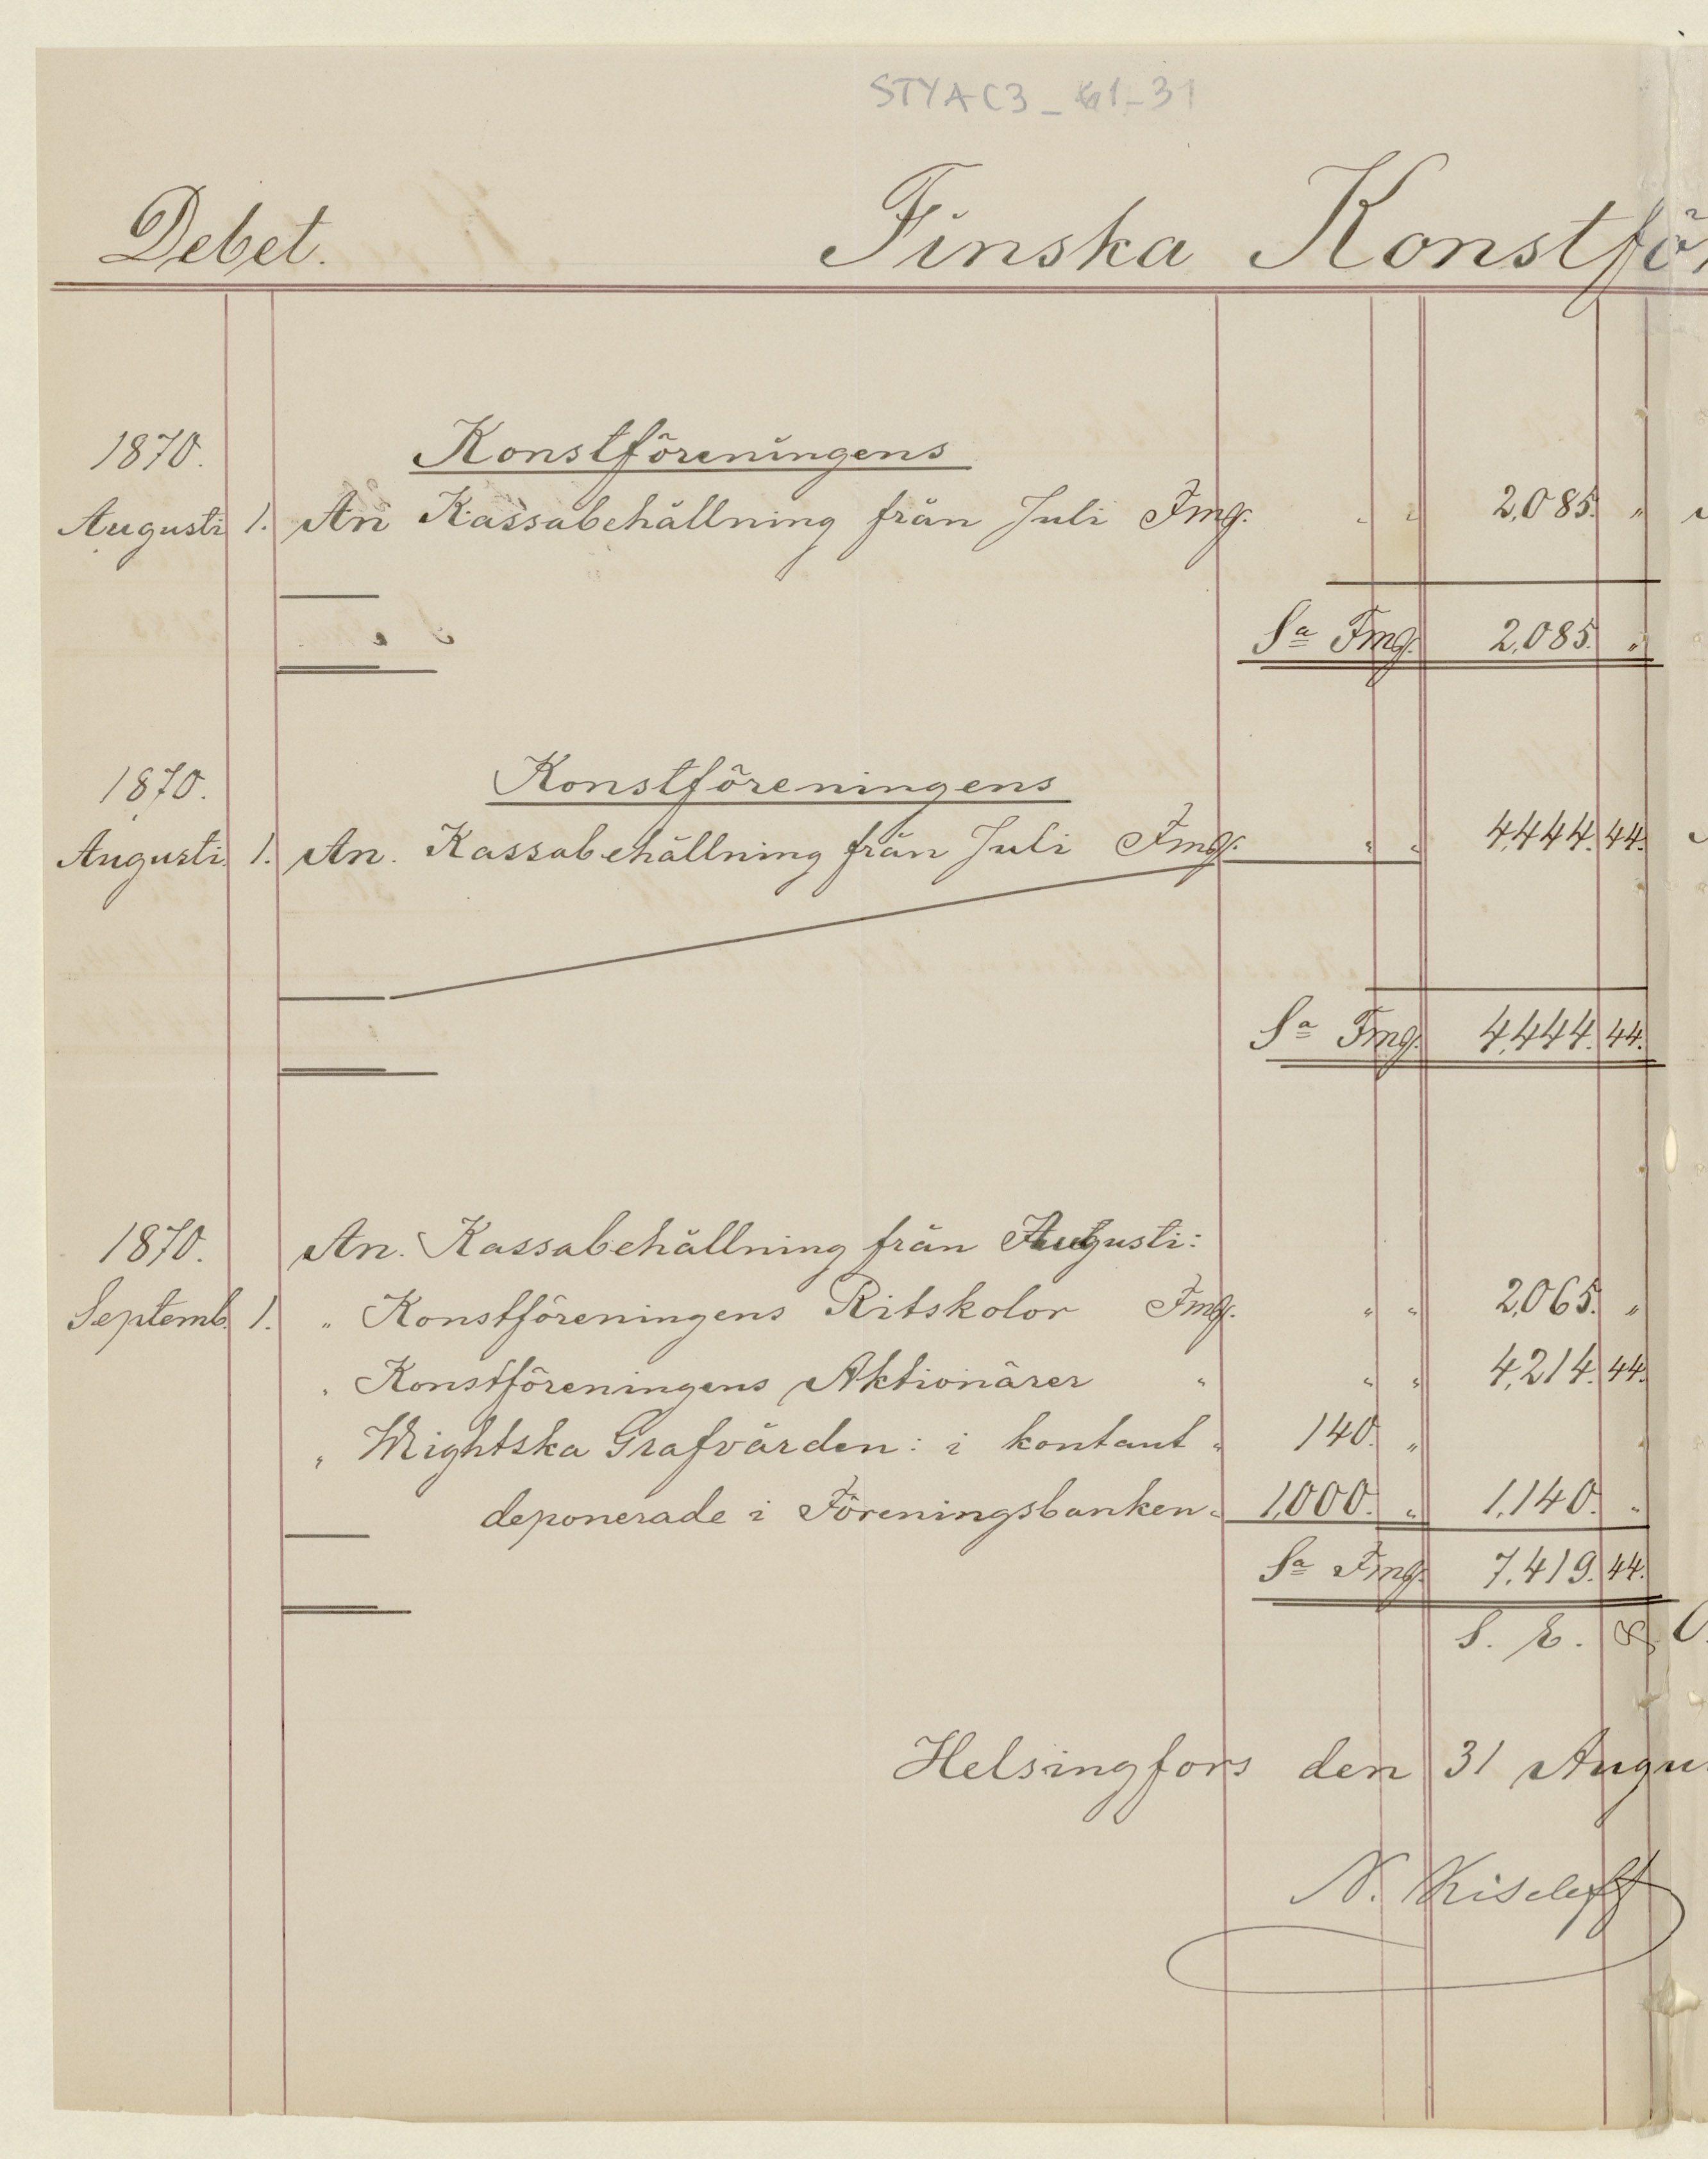 STYA C3_61-31
Debet. Finska Konstför
1870. Konstföreningens
Augusti 1. An Kassabehållning från Juli Fmg. " " 2,085. "
Sa Fmg. 2,085. "
1870. Konstföreningens
Augusti 1. An. Kassabehållning från Juli Fmg. " " 4,444. 44.
Sa Fmg. 4,444. 44.
1870. An. Kassabehållning från Augusti:
Septemb. 1. " Konstföreningens Ritskolor Fmg. " " 2,065. "
" Konstföreningens Aktionärer " " " 4,214. 44.
" Wrightska Grafvården: i kontant " 140. "
deponerade i Föreningsbanken " 1,000. " 1,140. "
Sa Fmg. 7,419. 44.
S. E. & O.
Helsingfors den 31 Augu
N. Kiseleff